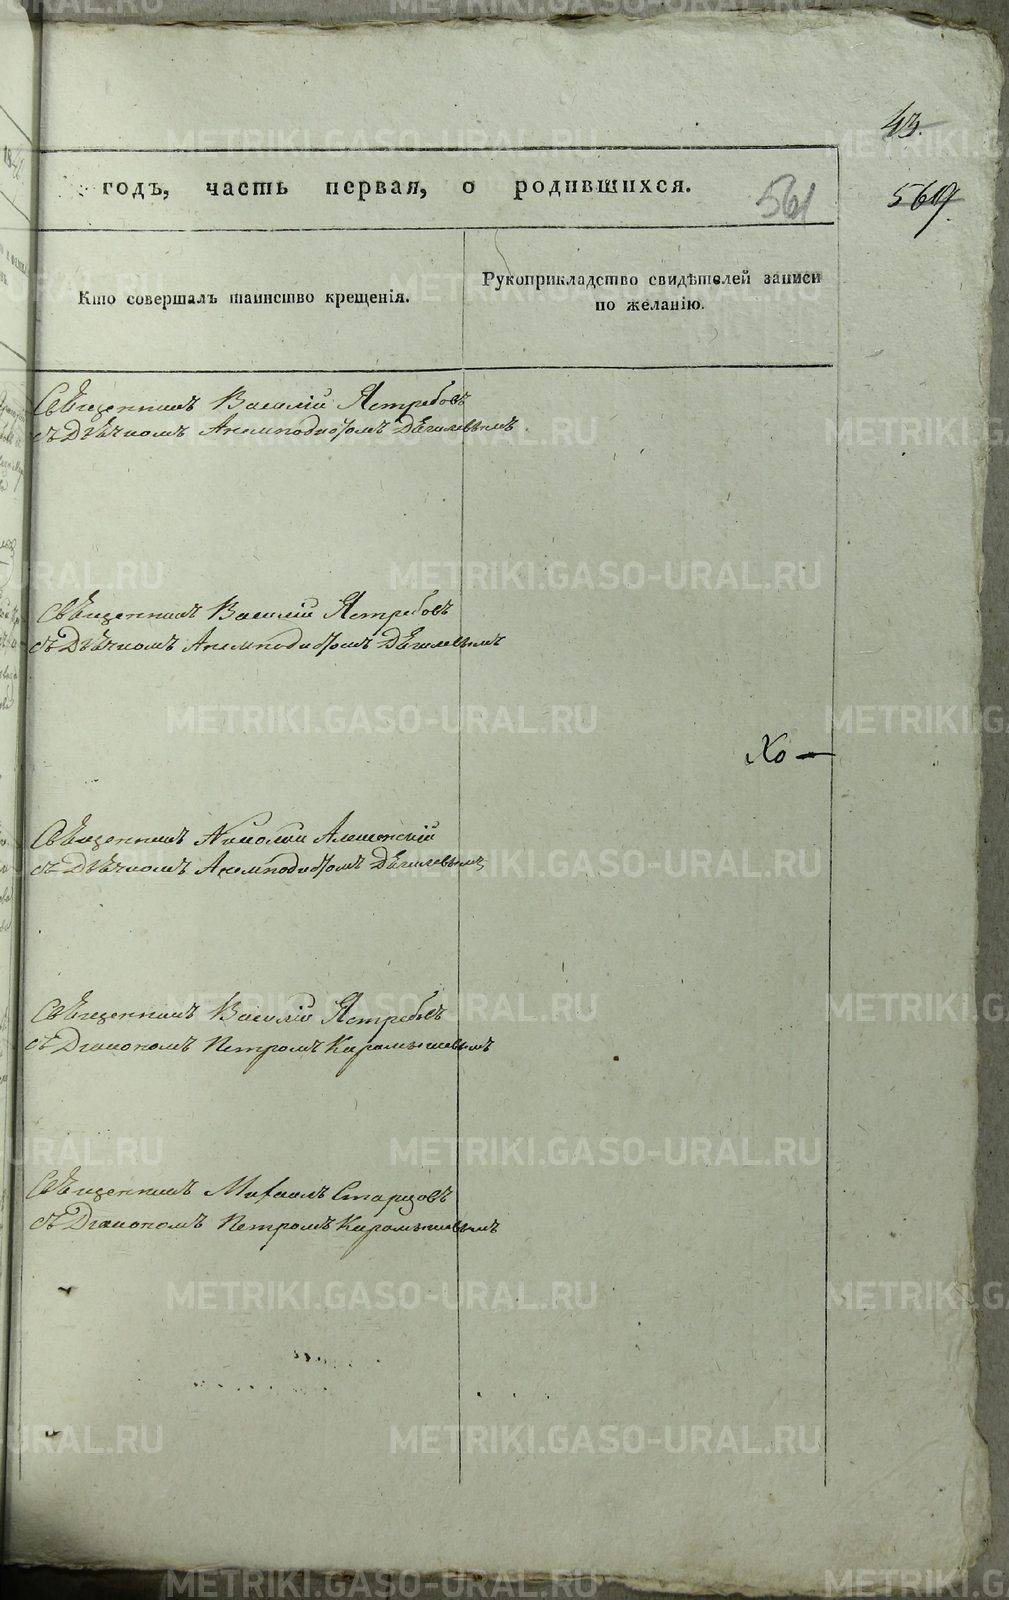 43.
годъ, часть первая, о родившихся.
561
569.
Кто совершалъ таинство крещенія.
Рукоприкладство свидѣтелей записи
по желанію.
Священникъ Василій Ястребовъ
съ Дьячкомъ Анемподистомъ Дѣгилевымъ
Священникъ Василій Ястребовъ
съ Дьячкомъ Анемподистомъ Дѣгилевымъ
Хо —
Священникъ Николай
съ Дьячкомъ Анемподистомъ Дѣгилевымъ
Священникъ Василій Ястребовъ
съ Діакономъ Петромъ Карамышевымъ
Священникъ Михаилъ Старцовъ
съ Діакономъ Петромъ Карамышевымъ
METRIKI.GASO-URAL.RU